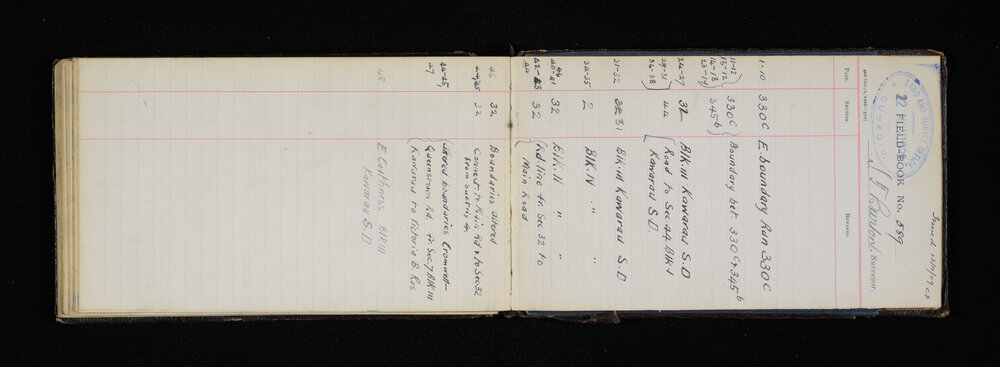 Issued 13/9/09
FIELD-BOOK No. 589
Surveyor.
LAND AND SURVEY OFFICE
22
DUNEDIN
Page. Section. Remarks.
1-10 330C E. boundary Run 330C
11-12
13-12 330C Boundary bet. 330C & 345b
14-18 345b
23-19
24-27 32 Blk III Kawarau S.D
29-31 44 Road to Sec 44 Blk I
36-38 Kawarau S.D.
31-32 31 Blk III Kawarau S.D
34-35 2 Blk. IV " "
40-41 32 Blk. II " "
42-43 32 Rd. line fr. Sec 32 to
44 Main Road.
46 32 Boundaries altered
32 Connect to Main Rd & to Sec 32
44-45 Altered boundaries Cromwell-
47 Queenstown Rd. fr. Sec. 7 Blk III
Kawarau to Victoria B. Res
48 E Caithness Blk III
Kawarau S.D